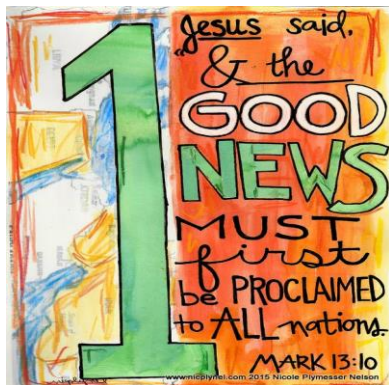 1
Jesus said,
"& the
GOOD
NEWS
MUST
first
be PROCLAIMED
to ALL nations.
MARK 13:10
www.nicplynel.com 2015 Nicole Plymesser Nelson